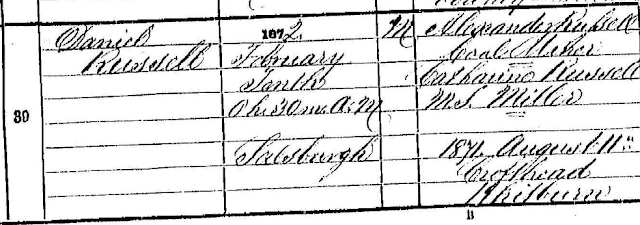 Daniel
Russell
1872
February
Tenth
0 h. 30 m. A.M.
Salsburgh
M
Alexander Russell
Coal Miner
Catharine Russell
M.S. Miller
1871 August 11th
Crofthead
Whitburn
39
B